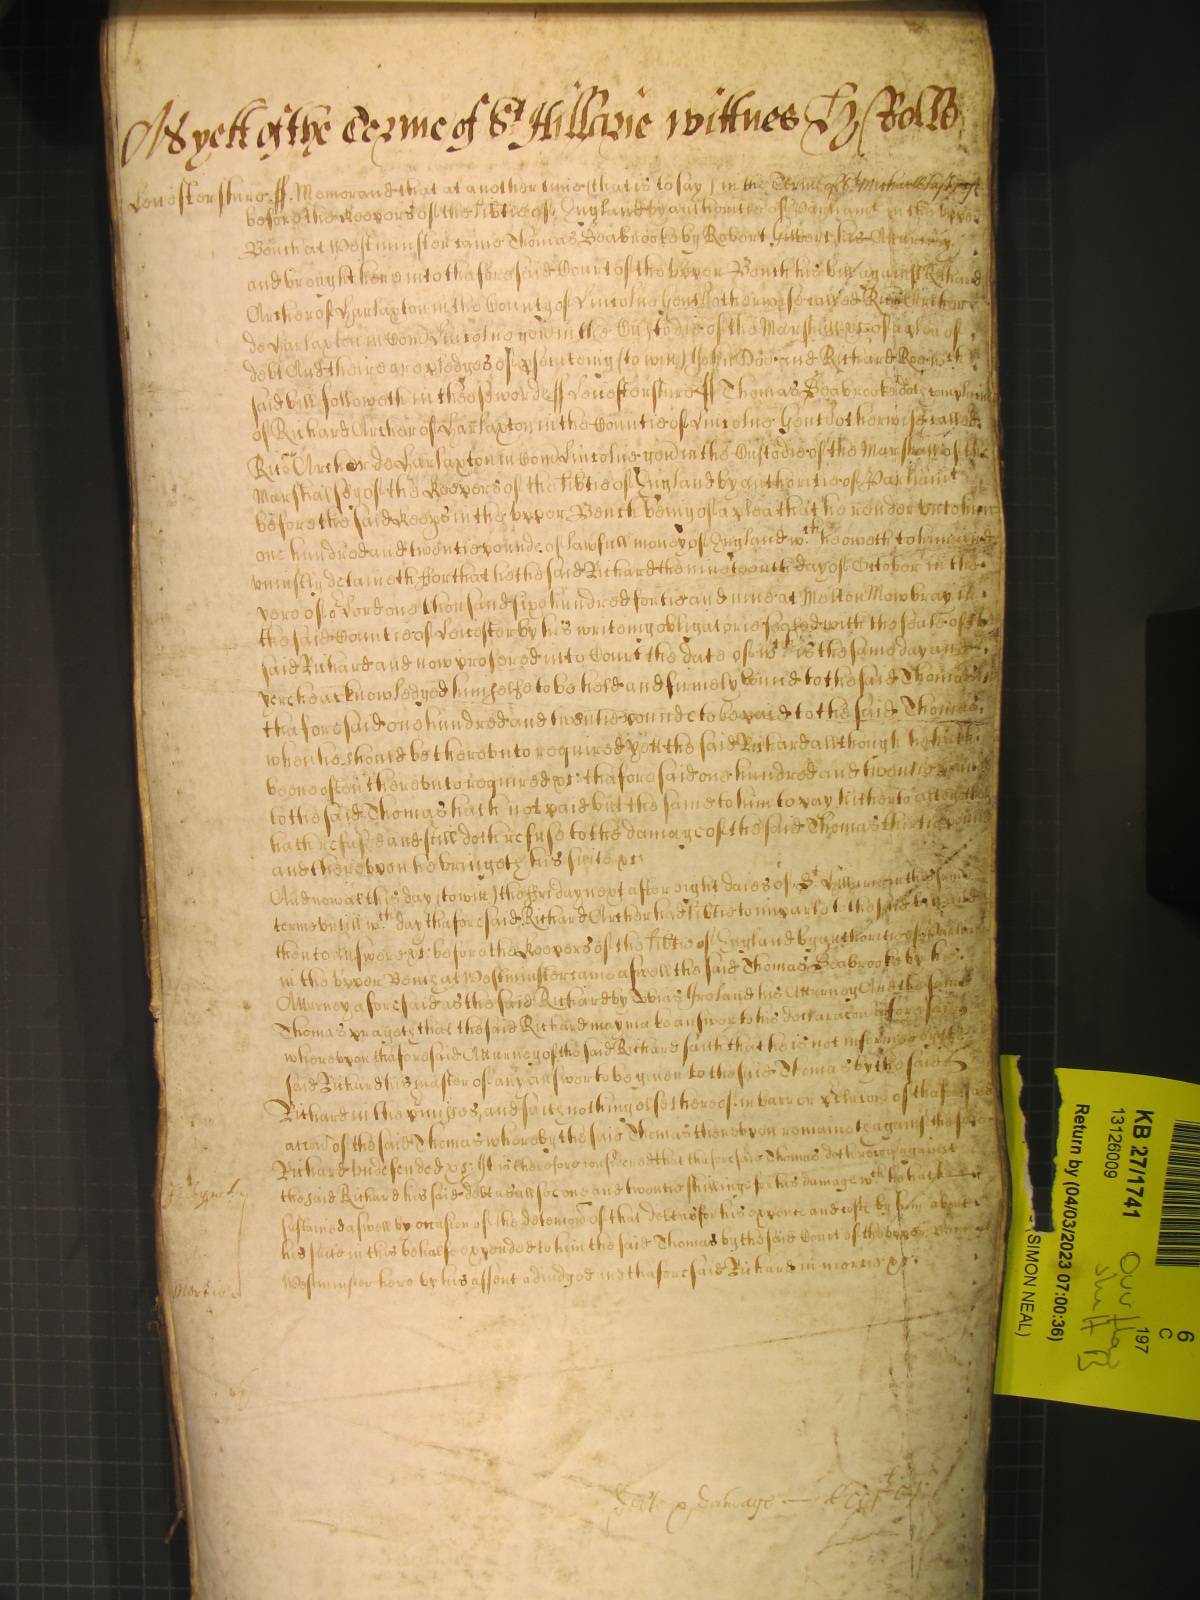 As yett of the Terme of St Hillarie wittnes Hy Rolle
Leicestershire ss. Memorand that at another time (that is to say) in the Terme of St Michaell last past
before the Keepers of the libtie of England by authoritie of Parliamt in the vpper
Bench at Westminster came Thomas Seabrooke by Robert Gilbert his Attorney
and brought here into thaforesaid Court of the vpper Bench his bill against Richard
Archer of Harlaxton in the County of Lincolne Gent otherwise called Ricu Archer
de Harlaxton in Com Lincolne gen in the Custodie of the Marshall &c of a plea of
debt And there are pledges of psecuteing (to witt) John Doo and Richard Roo wch
said bill followeth in theese words ss Leicestershire ss Thomas Seabrooke doth complaine
of Richard Archer of Harlaxton in the Countie of Lincolne Gent otherwise called
Ricu Archer de Harlaxton in Com Lincolne gen in the Custodie of the Marshall of the
Marshalsey of the Keepers of the libtie of England by authoritie of Parliamt
before the said Keeps in the vpper Bench being of a plea that he render vnto him
one hundred and twentie pounde of lawfull money of England wch he oweth to him and
vniustly detaineth For that he the said Richard the nineteenth day of October in the
yere of or Lord one thousand sixe hundred fortie and nine at Melton Mowbray in
the said Countie of Leicester by his writeing obligatorie sealed with the seale of the
said Richard and now pfered into Court the date of wch is the same day and
yere he acknowledged himselfe to be held and firmely bound to the said Thomas in
thaforesaid one hundred and twentie pounde to be paid to the said Thomas
when he should be therevnto required Yett the said Richard although he hath
beene often therevnto required &c thaforesaid one hundred and twentie pounde
to the said Thomas hath not paid but the same to him to pay hitherto altogether
hath refused and still doth refuse to the damage of the said Thomas thirtie pounde
and therevpon he bringeth his suite &c
And now at this day (to witt) the Friday next after eight daies of St Hillarie in this same
terme vntill wch day thaforesaid Richard Archer had libtie to imparle to the said bill and
then to answere &c before the Keepers of the libtie of England by authoritie of Parliamt
in the vpper Bench at Westminster came aswell the said Thomas Seabrooke by his
Attorney aforesaid as the said Richard by Tobias Groland his Attorney And the same
Thomas prayeth that the said Richard may make answer to his declaracon aforesaid
wherevpon thaforesaid Attorney of the said Richard saith that he is not informed by the
said Richard his master of any answer to be given to the said Thomas by the said
Richard in the pmisses, and saith nothing else thereof in barr or pclusion of thaforesaid
accon of the said Thomas whereby the said Thomas therevpon remaineth against the said
Richard vndefended &c It is therefore considered that thaforesaid Thomas doth recover against
the said Richard his said debt as alsoe one and twentie shillinge for his damage wch he hath
susteined aswell by occasion of the detencon of that debt as for his expence and coste by him about
his suite in this behalfe expended to him the said Thomas by the said Court of the vpper Bench at
Westminster here by his assent adiudged and thaforesaid Richard in mercie &c.
KB 27/1741
13126009
Return by (04/03/2023 07:00:36)
(SIMON NEAL)
6
C
197